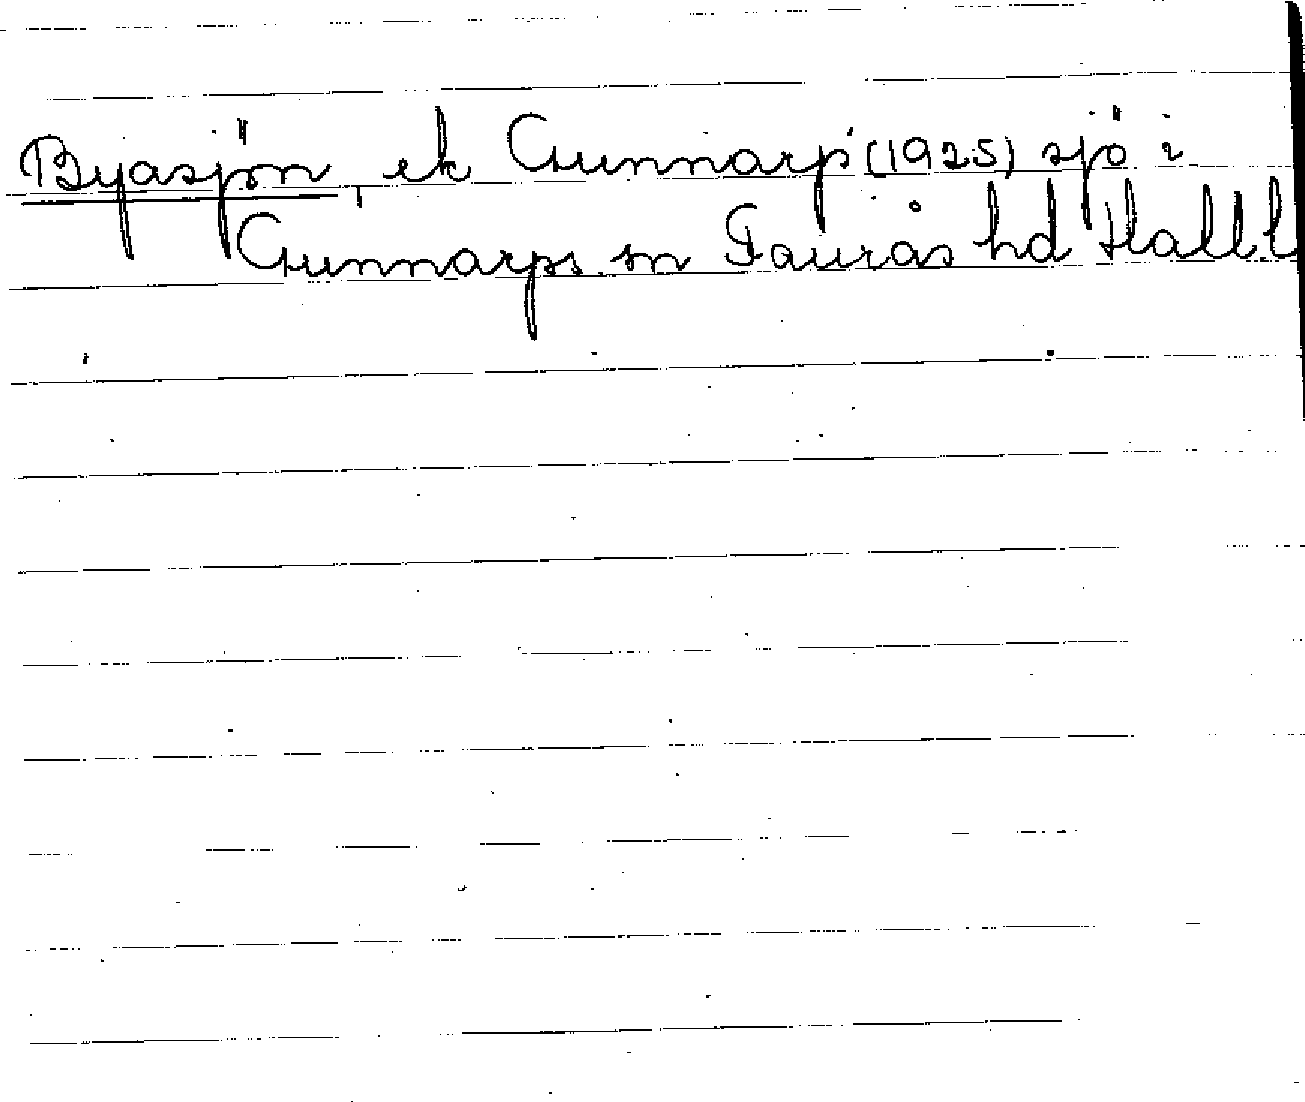 Byasjön, ek Gunnarp (1925) sjö i
Gunnarps sn Faurås hd Hall l